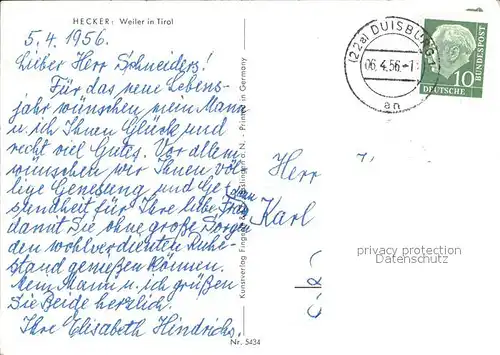 HECKER: Weiler in Tirol
5.4.1956.
Lieber Herr Schneiders!
Für das neue Lebens-
jahr wünschen mein Mann
u. ich Ihnen Glück und
recht viel Gutes. Vor allem
wünschen wir Ihnen völ-
lige Genesung und Ge-
sundheit für Ihre liebe Frau,
damit Sie ohne große Sorgen
den wohlverdienten Ruhe-
stand genießen können.
Mein Mann u. ich grüßen
Sie Beide herzlich.
Ihre Elisabeth Hindrichs.
Nr. 5434
Kunstverlag a. N. - Printed in Germany
(22a) DUISBURG
06.4.56.-1
an
10
DEUTSCHE
BUNDESPOST
Herr
Karl
privacy protection
Datenschutz